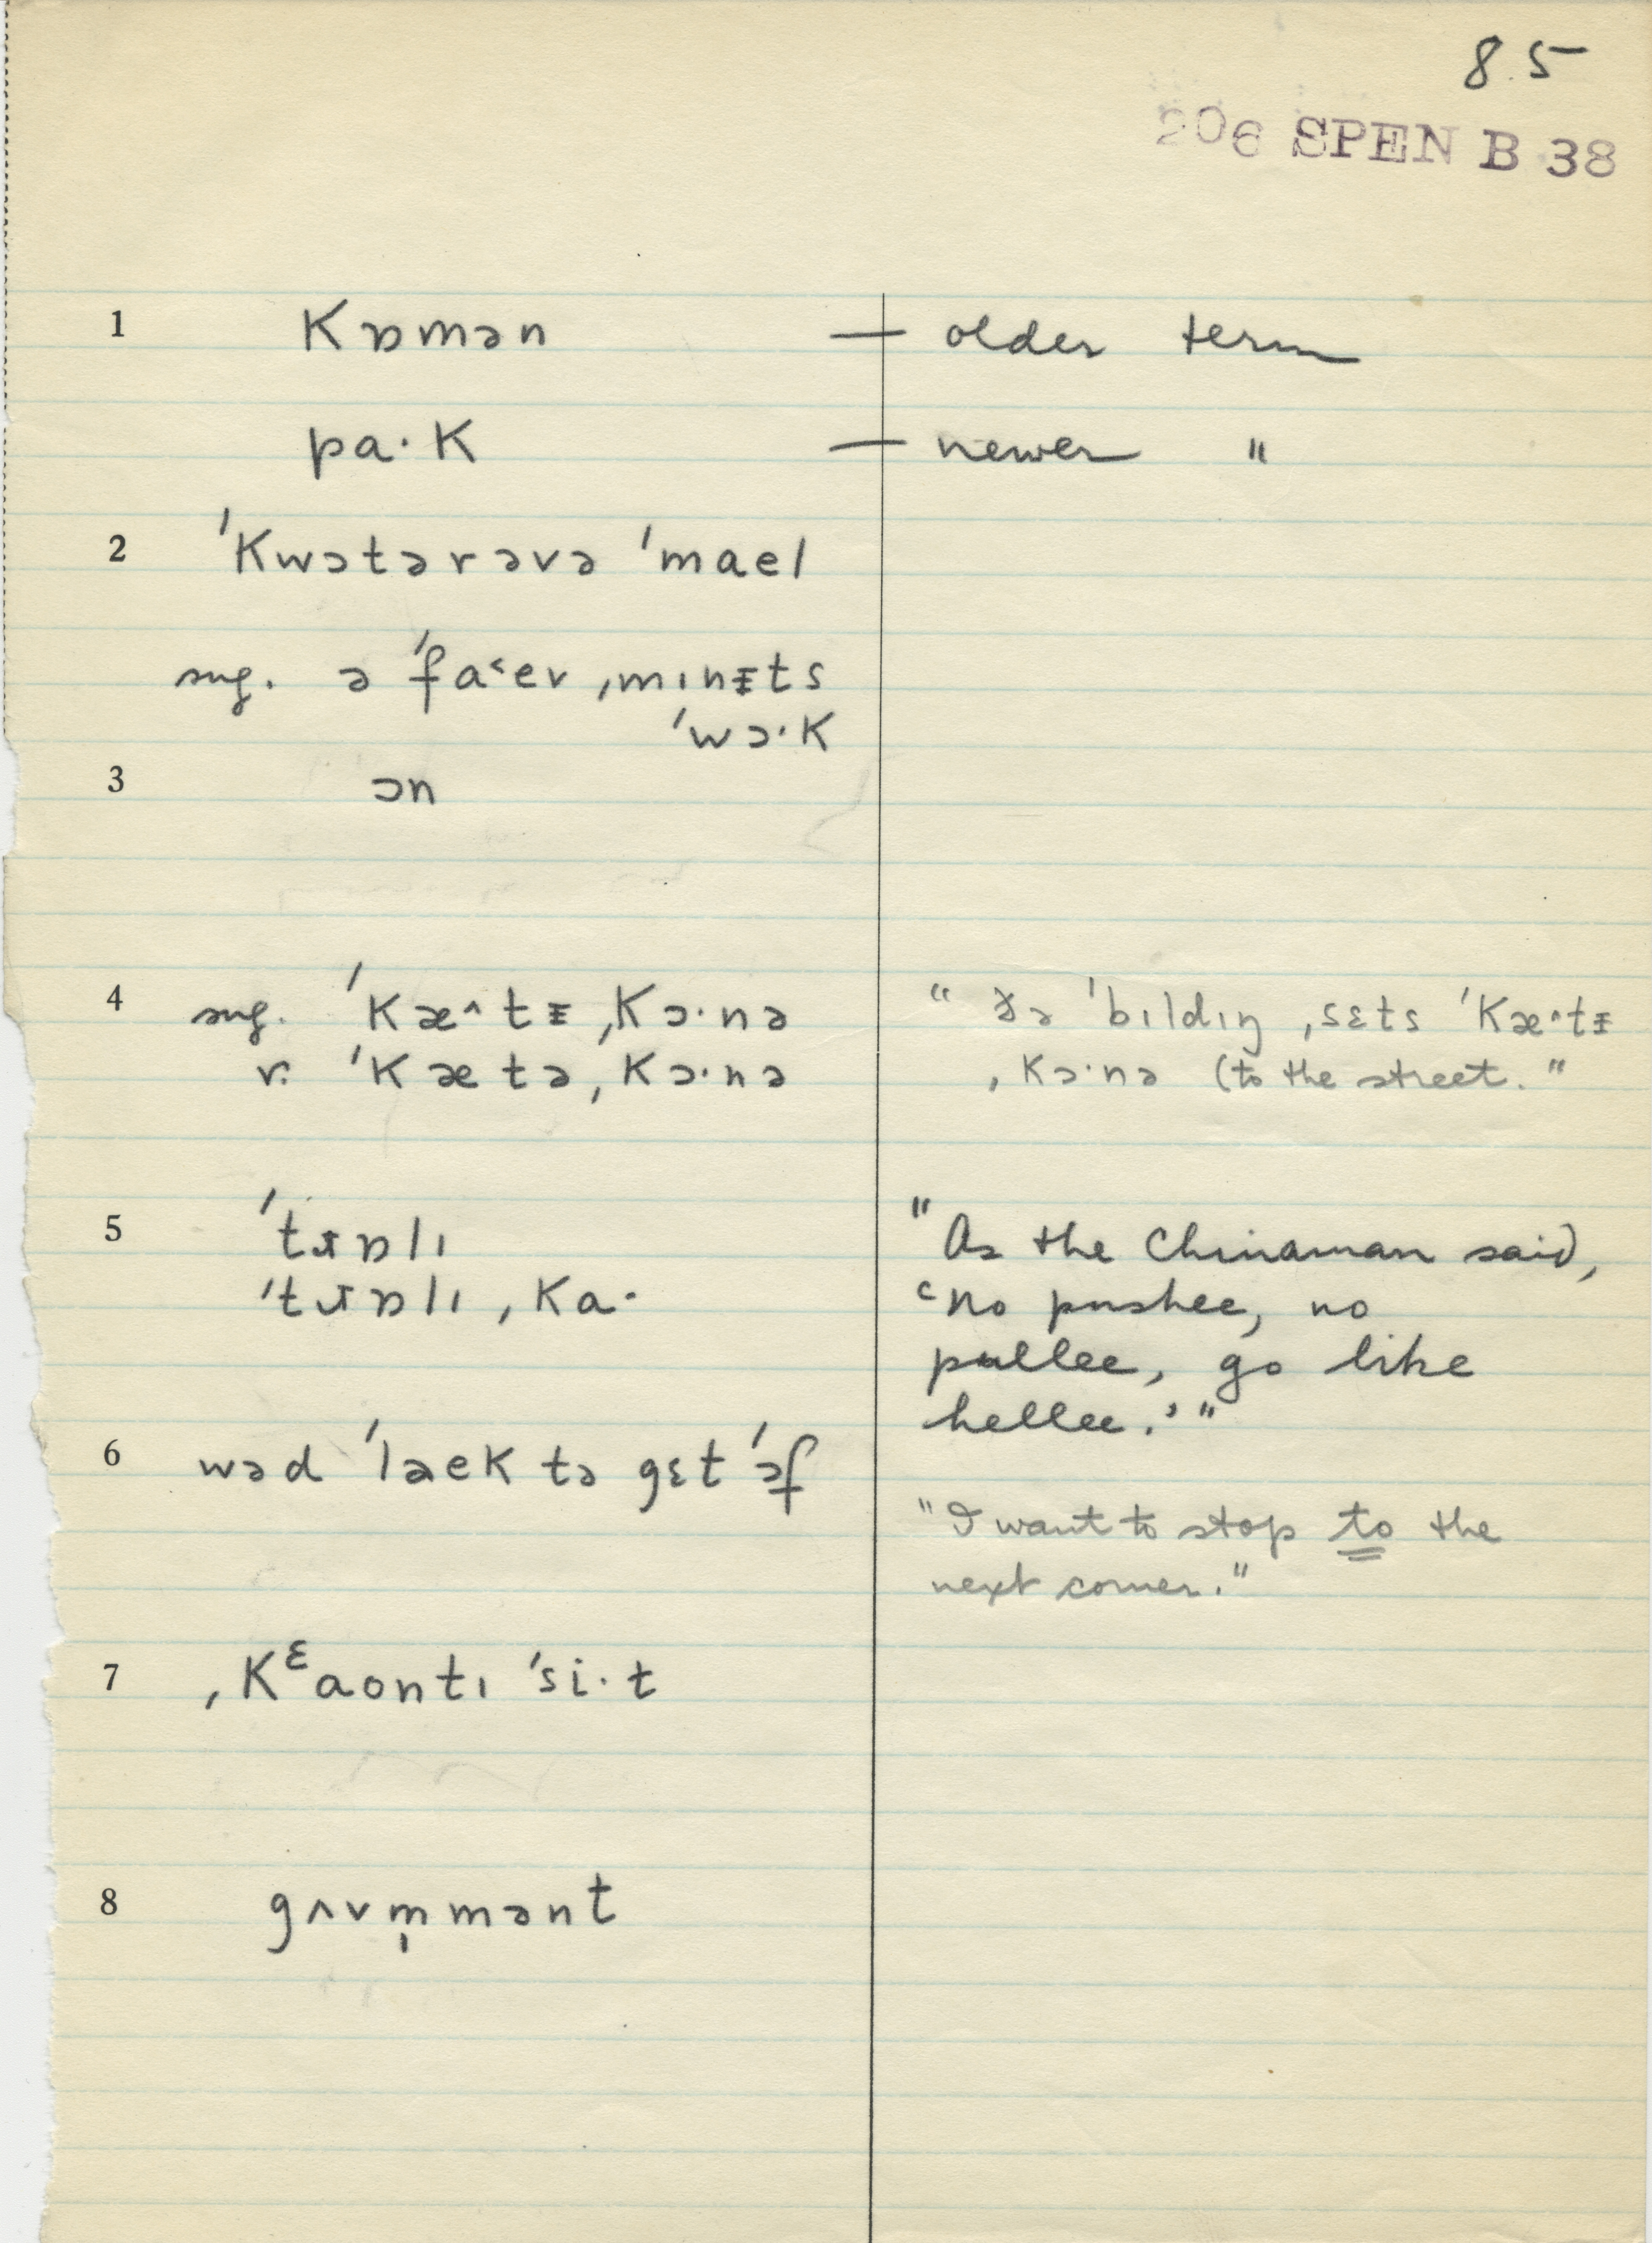 85
206 SPEN B 38
1 Kɒmən — older term
pa·K — newer "
2 ˈKwɔtərəvə ˈmael
sug. ə ˈfa˂ev ˌmɪnɪ̵ts
ˈwɔ·K
3 ɔn
4 sug. ˈKæ^tɪ̵ ˌKɔ·nə
r. ˈKætə ˌKɔ·nə
" ðə ˈbɪldɪŋ ˌsɛts ˈKæ^tɪ̵
ˌKɔ·nə (to the street."
5 ˈtɹɒlɪ
ˈtɹɒlɪ ˌKa·
"As the Chinaman said,
‘no pushee, no
pullee, go like
hellee.’"
6 wəd ˈlaeK tə gɛt ˈɔf
"I want to stop to the
next corner."
7 ˌKᵋaontɪ ˈsi·t
8 gʌvm̩mənt